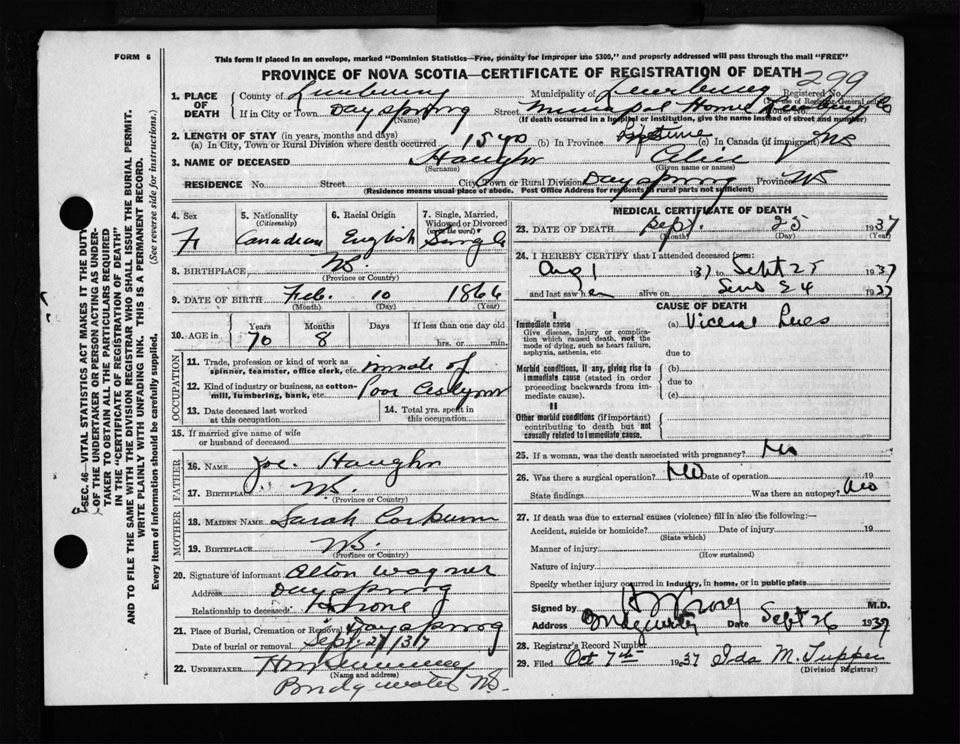 FORM 6
This form if placed in an envelope, marked "Dominion Statistics—Free, penalty for improper use $300," and properly addressed will pass through the mail "FREE"
PROVINCE OF NOVA SCOTIA—CERTIFICATE OF REGISTRATION OF DEATH 299
1. PLACE OF DEATH
County of Lunenburg Municipality of Lunenburg Registered No.
(For use of Registrar General only)
If in City or Town Dayspring Street Municipal Home Lunenburg Co House No.
(Name) (If death occurred in a hospital or institution, give the name instead of street and number)
2. LENGTH OF STAY (in years, months and days)
(a) In City, Town or Rural Division where death occurred 15 yo (b) In Province lifetime (c) In Canada (if immigrant) NS
3. NAME OF DECEASED Haughn Alice
(Surname) (Given name or names)
RESIDENCE No. Street City, Town or Rural Division Dayspring Province NS
(Residence means usual place of abode. Post Office Address for residents of rural parts not sufficient)
4. Sex
F
5. Nationality
(Citizenship)
Canadian
6. Racial Origin
English
7. Single, Married, Widowed or Divorced
(write the word)
Single
8. BIRTHPLACE NS.
(Province or Country)
9. DATE OF BIRTH Feb. 10 1866
(Month) (Day) (Year)
10. AGE in Years Months Days If less than one day old
70 8 hrs. or min.
OCCUPATION
11. Trade, profession or kind of work as spinner, teamster, office clerk, etc. inmate of
12. Kind of industry or business, as cotton-mill, lumbering, bank, etc. Poor Asylum
13. Date deceased last worked at this occupation
14. Total yrs. spent in this occupation
15. If married give name of wife or husband of deceased
FATHER
16. NAME Joe. Haughn
17. BIRTHPLACE NS.
(Province or Country)
MOTHER
18. MAIDEN NAME Sarah Corkum
19. BIRTHPLACE NS.
(Province or Country)
20. Signature of informant Alton Wagner
Address Dayspring
Relationship to deceased none
21. Place of Burial, Cremation or Removal Dayspring
Date of burial or removal Sept 27/37
22. UNDERTAKER
(Name and address)
Bridgewater NS.
MEDICAL CERTIFICATE OF DEATH
23. DATE OF DEATH Sept. 25 1937
(Month) (Day) (Year)
24. I HEREBY CERTIFY that I attended deceased from:
Aug 1 1937 to Sept 25 1937
and last saw h er alive on Sept 24 1937
CAUSE OF DEATH
I
Immediate cause
Give disease, injury or complication which caused death, not the mode of dying, such as heart failure, asphyxia, asthenia, etc
(a) Visceral Lues
due to
Morbid conditions, if any, giving rise to immediate cause (stated in order proceeding backwards from immediate cause).
(b)
due to
(c)
II
Other morbid conditions (if important) contributing to death but not causally related to immediate cause.
25. If a woman, was the death associated with pregnancy? No
26. Was there a surgical operation? No Date of operation 19
State findings Was there an autopsy? No
27. If death was due to external causes (violence) fill in also the following:—
Accident, suicide or homicide? Date of injury 19
(State which)
Manner of injury
(How sustained)
Nature of injury
Specify whether injury occurred in industry, in home, or in public place
Signed by M.D.
Address Bridgewater Date Sept 26 1937
28. Registrar's Record Number
29. Filed Oct 7th 1937 Ida M. Tupper
(Division Registrar)
SEC. 46—VITAL STATISTICS ACT MAKES IT THE DUTY OF THE UNDERTAKER OR PERSON ACTING AS UNDERTAKER TO OBTAIN ALL THE PARTICULARS REQUIRED IN THE "CERTIFICATE OF REGISTRATION OF DEATH"
AND TO FILE THE SAME WITH THE DIVISION REGISTRAR WHO SHALL ISSUE THE BURIAL PERMIT.
WRITE PLAINLY WITH UNFADING INK. THIS IS A PERMANENT RECORD.
Every item of information should be carefully supplied. (See reverse side for instructions.)